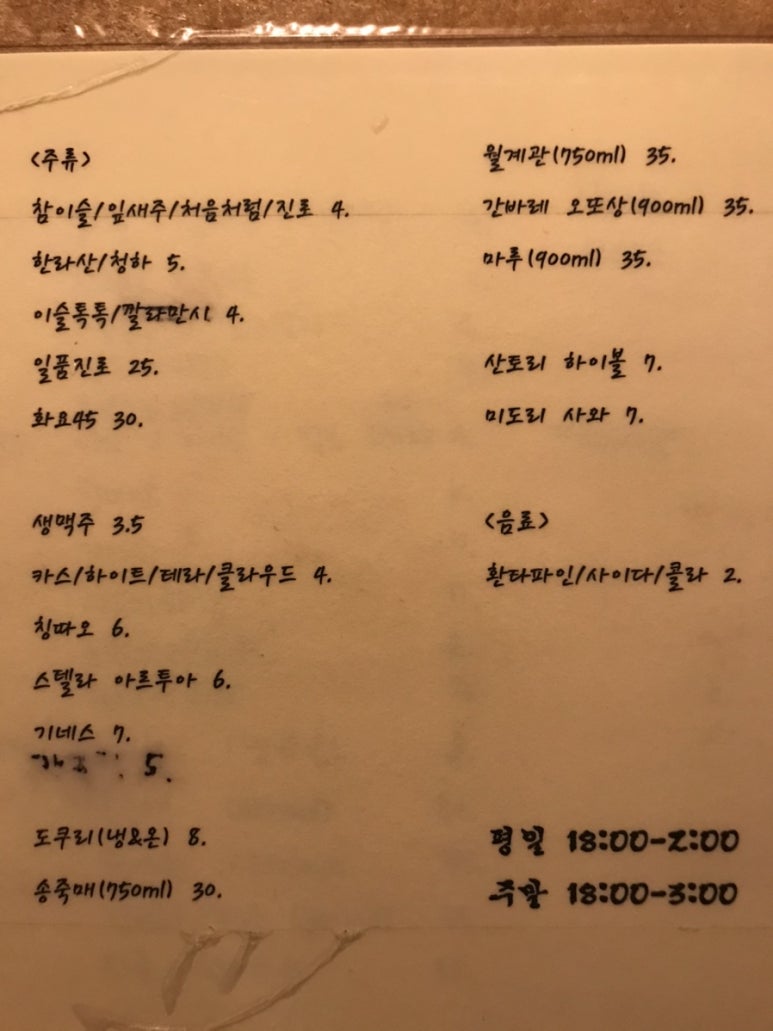 <주류>
참이슬/잎새주/처음처럼/진로 4.
한라산/청하 5.
이슬톡톡/깔라만시 4.
일품진로 25.
화요45 30.
생맥주 3.5
카스/하이트/테라/클라우드 4.
칭따오 6.
스텔라 아르투아 6.
기네스 7.
5.
도쿠리(냉&온) 8.
송죽매(750ml) 30.
월계관(750ml) 35.
간바레 오또상(900ml) 35.
마루(900ml) 35.
산토리 하이볼 7.
미도리 사와 7.
<음료>
환타파인/사이다/콜라 2.
평일 18:00-2:00
주말 18:00-3:00